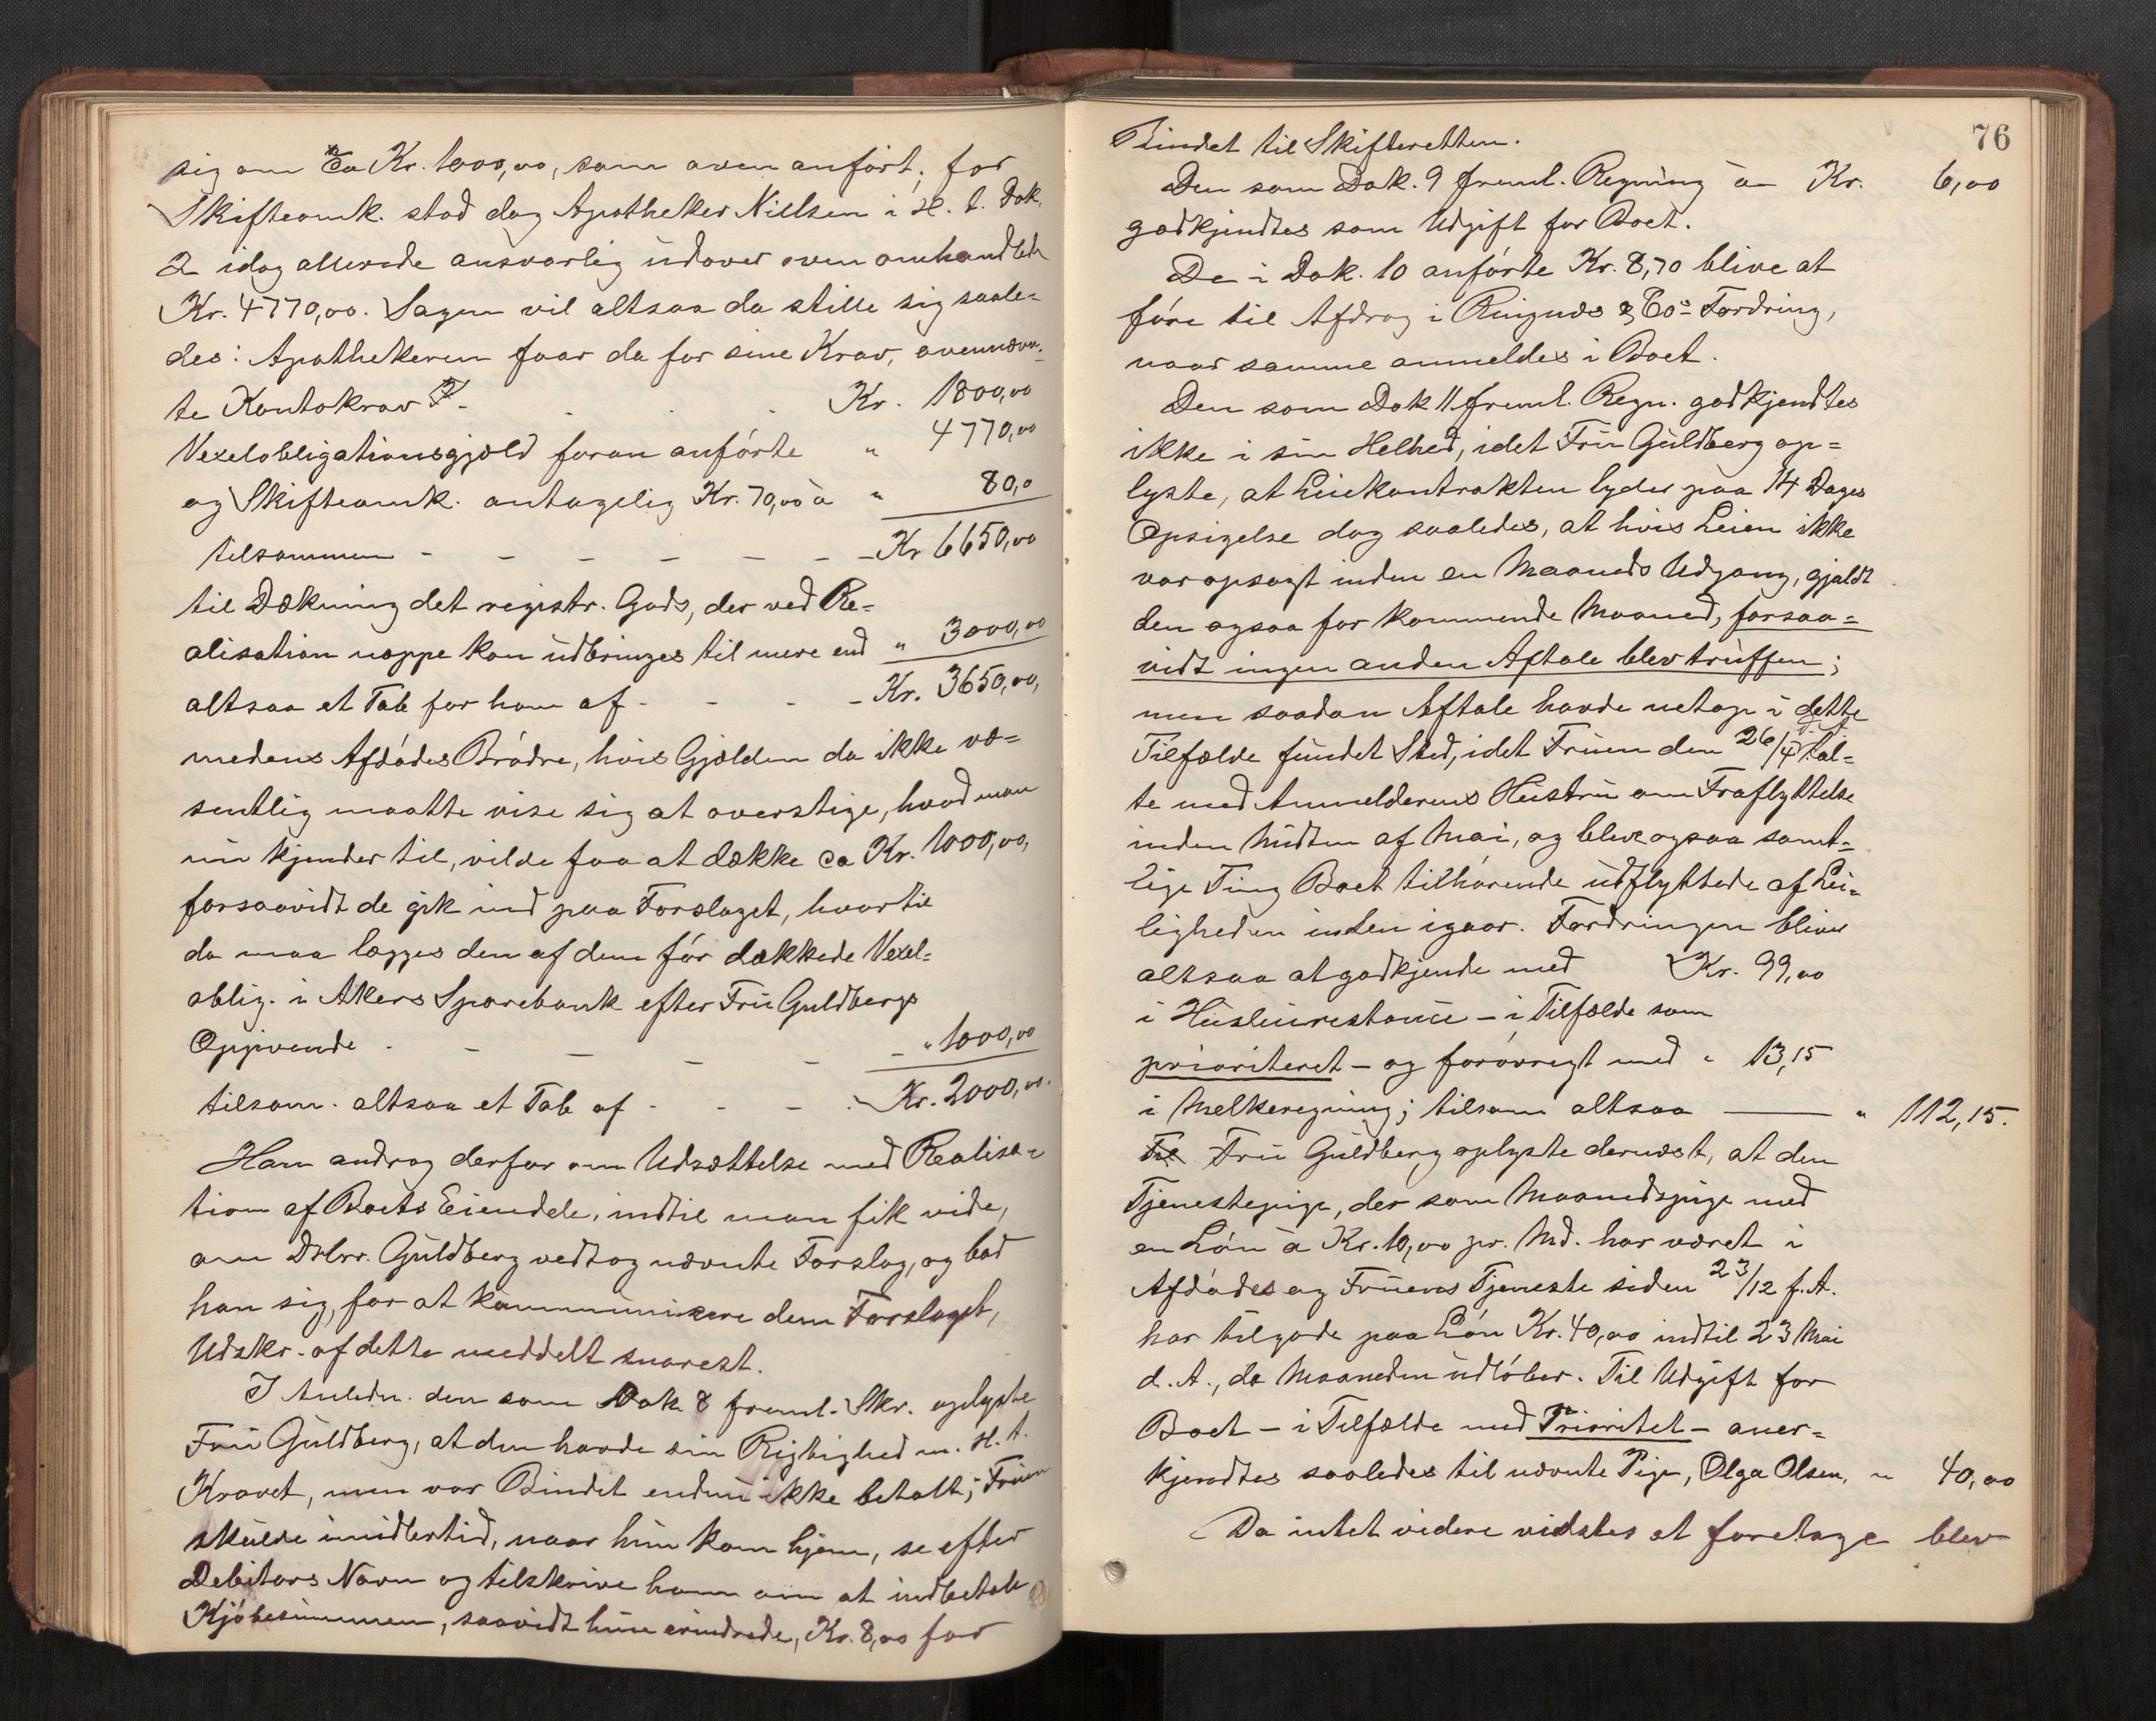 sig om ca Kr. 1000,00, som oven anført; for
Skifteomk. stod dog Apotheker Nielsen i H. t. Dok.
2 idag allerede ansvarlig udover oven omhandlede
Kr. 4770,00. Sagen vil altsaa da stille sig saale=
des: Apothekeren faar da for sine Krav, ovennævn=
te Kontokrav Kr. 1800,00
Vexelobligationsgjæld foran anførte " 4770,00
og Skifteomk. antagelig Kr. 70,00 à " 80,0
tilsammen - - - - - - Kr 6650,00
til Dækning det registr. Gods, der ved Re=
alisation neppe kan udbringes til mere end " 3000,00
altsaa et Tab for ham af - - - - Kr. 3650,00,
medens Afdødes Brødre, hvis Gjælden da ikke væ=
sentlig maatte vise sig at overstige, hvad man
nu kjender til, vilde faa at dække ca Kr. 1000,00,
forsaavidt de gik ind paa Forslaget, hvortil
da maa lægges den af dem før dækkede Vexel=
oblig. i Akers Sparebank efter Fru Guldbergs
Opgivende - - - - - - " 1000,00
tilsam. altsaa et Tab af - - - - Kr. 2000,00.
Han androg derfor om Udsættelse med Realisa=
tion af Boets Eiendele, indtil man fik vide,
om Dhrr. Guldberg vedtog nævnte Forslag, og bad
han sig, for at kommunicere dem Forslaget,
Udskr. af dette meddelt snarest.
I Anledn. den som Dok. 8 freml. Skr. oplyste
Fru Guldberg, at den havde sin Rigtighed m. H. t.
Kravet, men var Bindet endnu ikke betalt; Fruen
skulde imidlertid, naar hun kom hjem, se efter
Debitors Navn og tilskrive ham om at indbetale
Kjøbesummen, saavidt hun erindrede, Kr. 8,00 for
76
Bindet til Skifteretten.
Den som Dok. 9 freml. Regning à Kr. 6,00
godkjendtes som Udgift for Boet.
De i Dok. 10 anførte Kr. 8,70 blive at
føre til Afdrag i Ringnes & Co's Fordring,
naar samme anmeldes i Boet.
Den som Dok 11 freml. Regn. godkjendtes
ikke i sin Helhed, idet Fru Guldberg op=
lyste, at Leiekontrakten lyder paa 14 Dages
Opsigelse dog saaledes, at hvis Leien ikke
var opsagt inden en Maaneds Udgang, gjaldt
den ogsaa for kommende Maaned, forsaa=
vidt ingen anden Aftale blev truffen;
men saadan Aftale havde netop i dette
Tilfælde fundet Sted, idet Fruen den 26/4 tal=
te med Anmelderens Hustru om Fraflyttelse
inden Midten af Mai, og bleve ogsaa samt=
lige Ting Boet tilhørende udflyttede af Lei=
ligheden inden igaar. Fordringen bliver
altsaa at godkjende med Kr. 99,00
i Husleierestance - i Tilfælde som
prioriteret - og forøvrigt med " 13,15
i Melkeregning; tilsam altsaa — " 112,15.
Fru Guldberg oplyste dernæst, at den
Tjenestepige, der som Maanedspige med
en Løn à Kr. 10,00 pr. Md. har været i
Afdødes og Fruens Tjeneste siden 23/12 f. A.
har tilgode paa Løn Kr. 40,00 indtil 23 Mai
d. A., da Maaneden udløber. Til Udgift for
Boet - i Tilfælde med Prioritet - aner=
kjendtes saaledes til nævnte Pige, Olga Olsen, " 40,00
Da intet videre vidstes at foretage blev